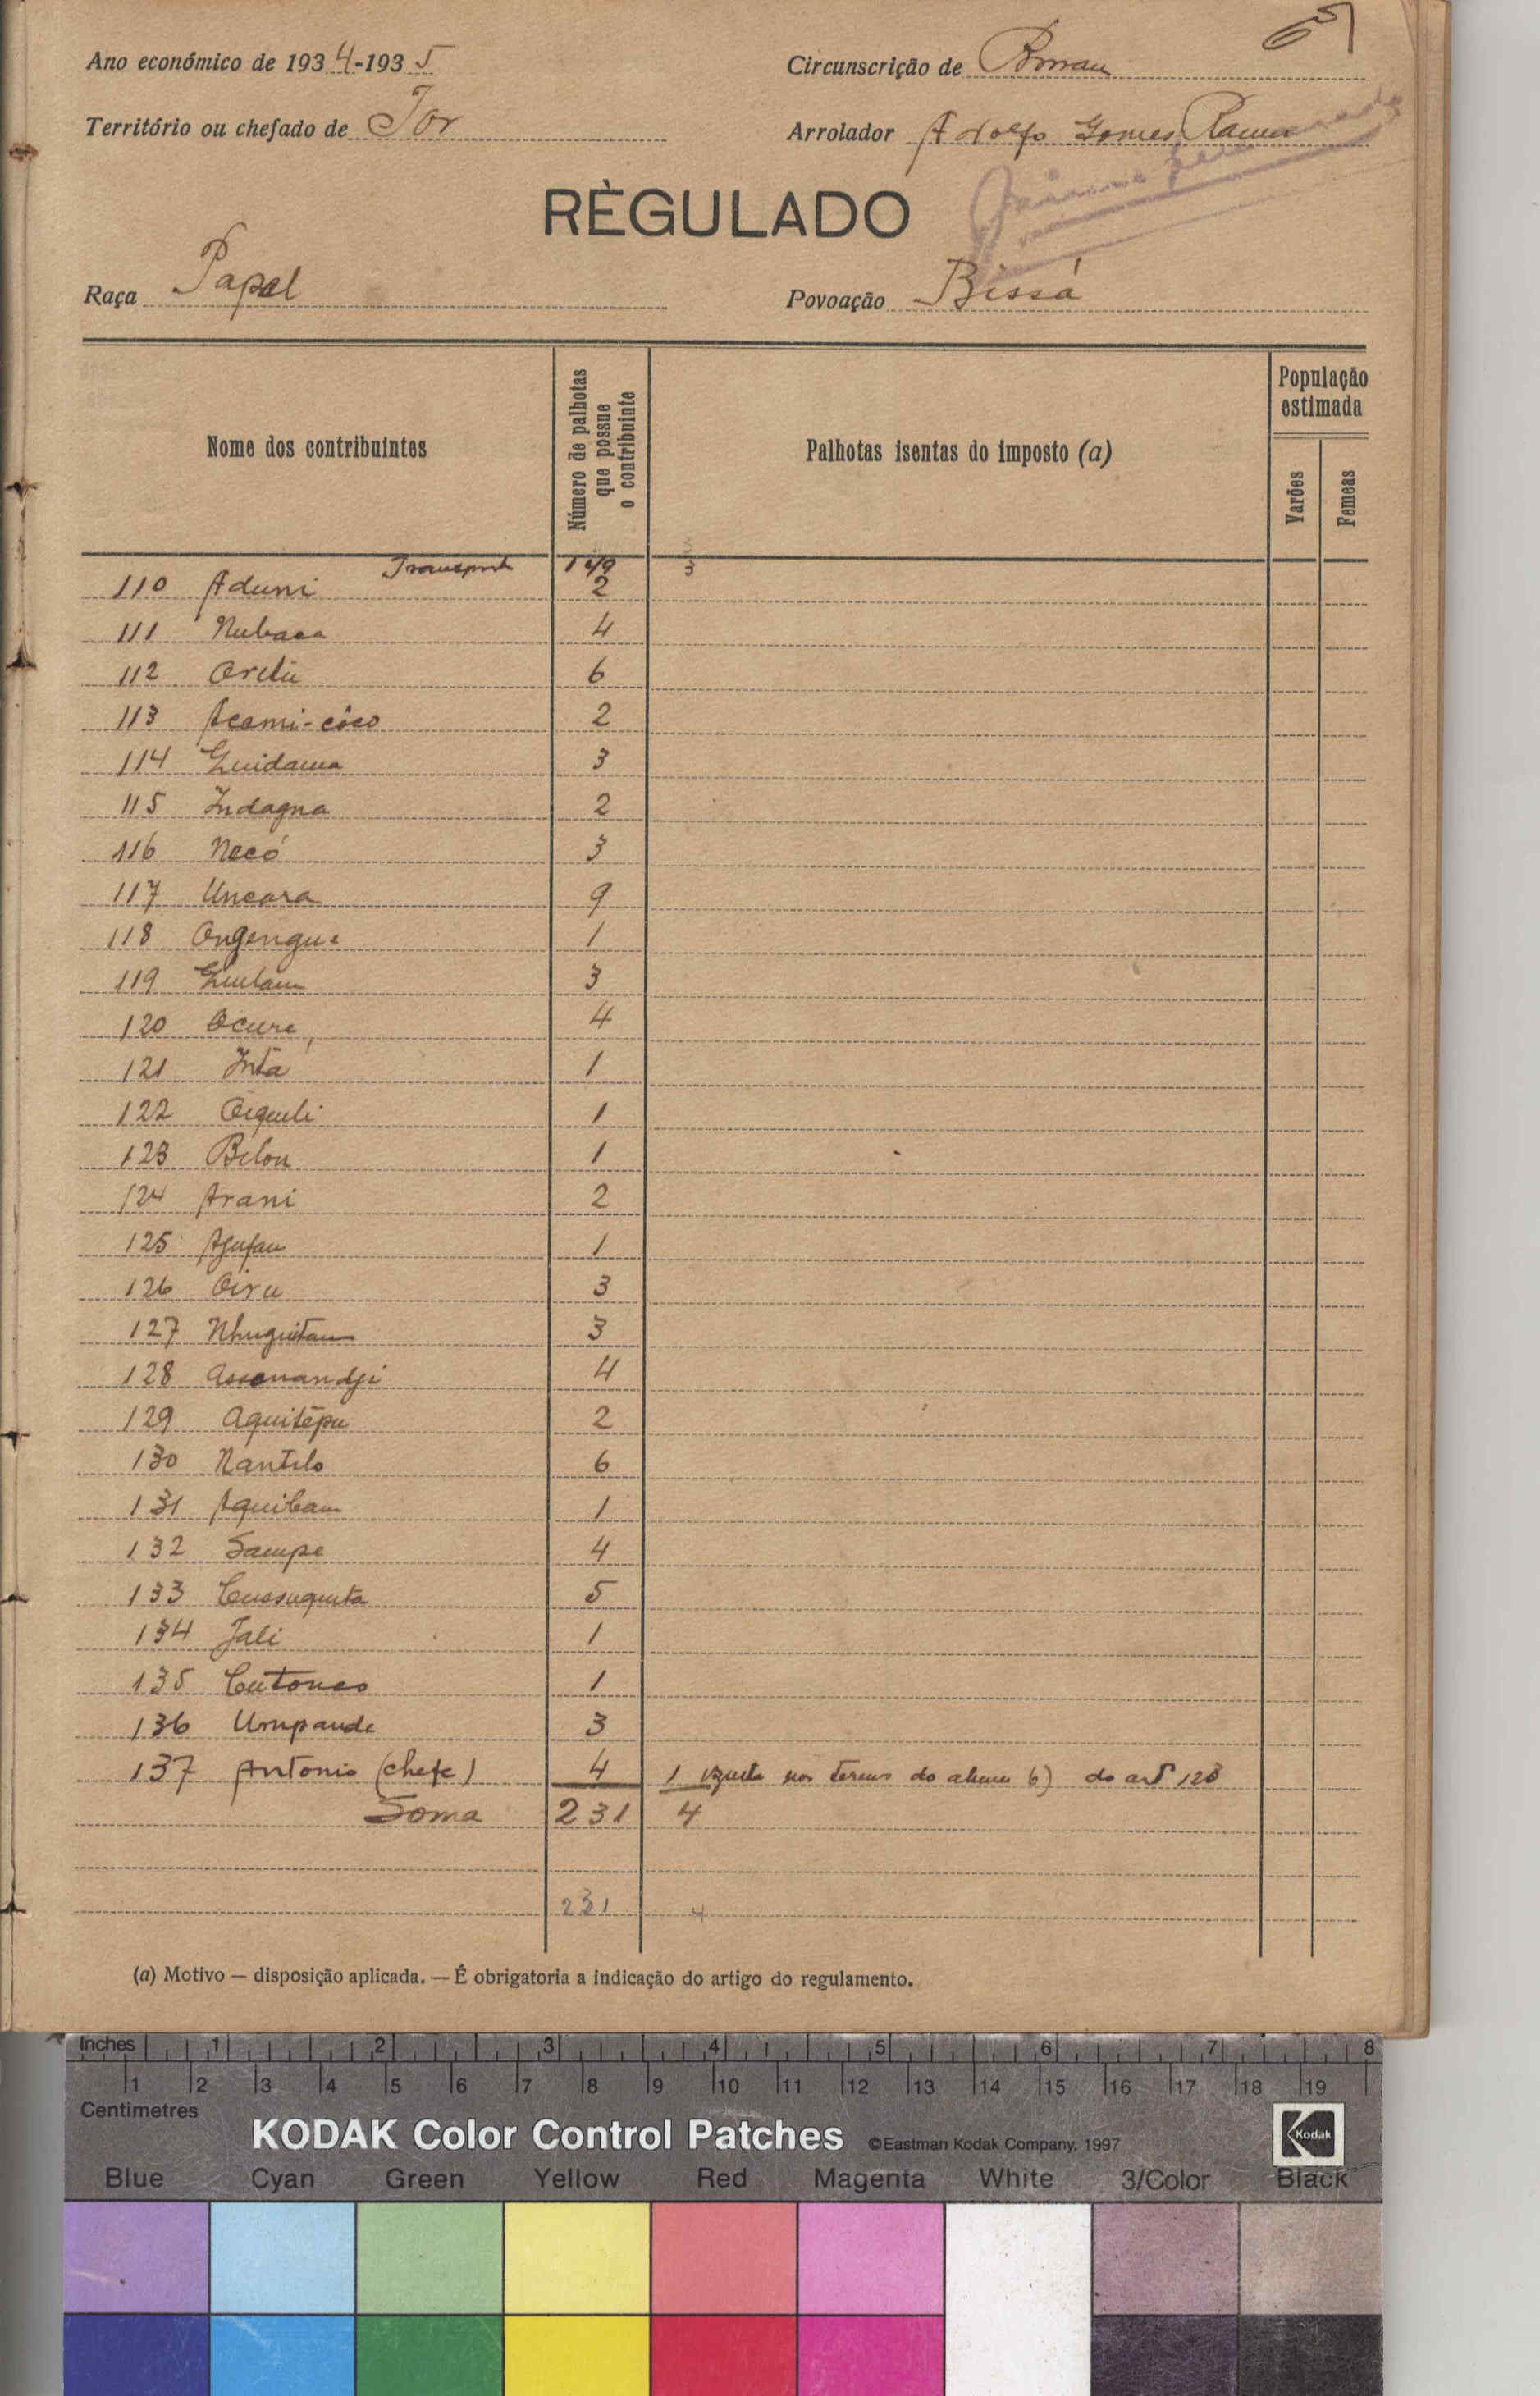 65
Ano económico de 1934-1935
Circunscrição de
Território ou chefado de Tor
Arrolador Adolfo Gomes Ramos
RÈGULADO
Raça Papel
Povoação Bissá
Nome dos contribuintes
Número de palhotas que possue o contribuinte
Palhotas isentas do imposto (a)
População estimada
Varões
Femeas
Transporte 149 3
110 Aduni 2
111 Nubaca 4
112 6
113 Acami-côco 2
114 Guidama 3
115 Indagna 2
116 Necó 3
117 Uncara 9
118 Ongengue 1
119 3
120 Ocure 4
121 Intá 1
122 1
123 Belon 1
124 Arani 2
125 1
126 Oiru 3
127 Nhuguitam 3
128 Assanandji 4
129 Aquitépu 2
130 Nantelo 6
131 Aquibam 1
132 Sampe 4
133 5
134 Jali 1
135 1
136 Umpande 3
137 Antonio (chefe) 4 1 nos termos do b) do artº 128
Soma 231 4
231 4
(a) Motivo — disposição aplicada. — É obrigatoria a indicação do artigo do regulamento.
Inches 1 2 3 4 5 6 7 8
1 2 3 4 5 6 7 8 9 10 11 12 13 14 15 16 17 18 19
Centimetres
KODAK Color Control Patches ©Eastman Kodak Company, 1997 Kodak
Blue Cyan Green Yellow Red Magenta White 3/Color Black